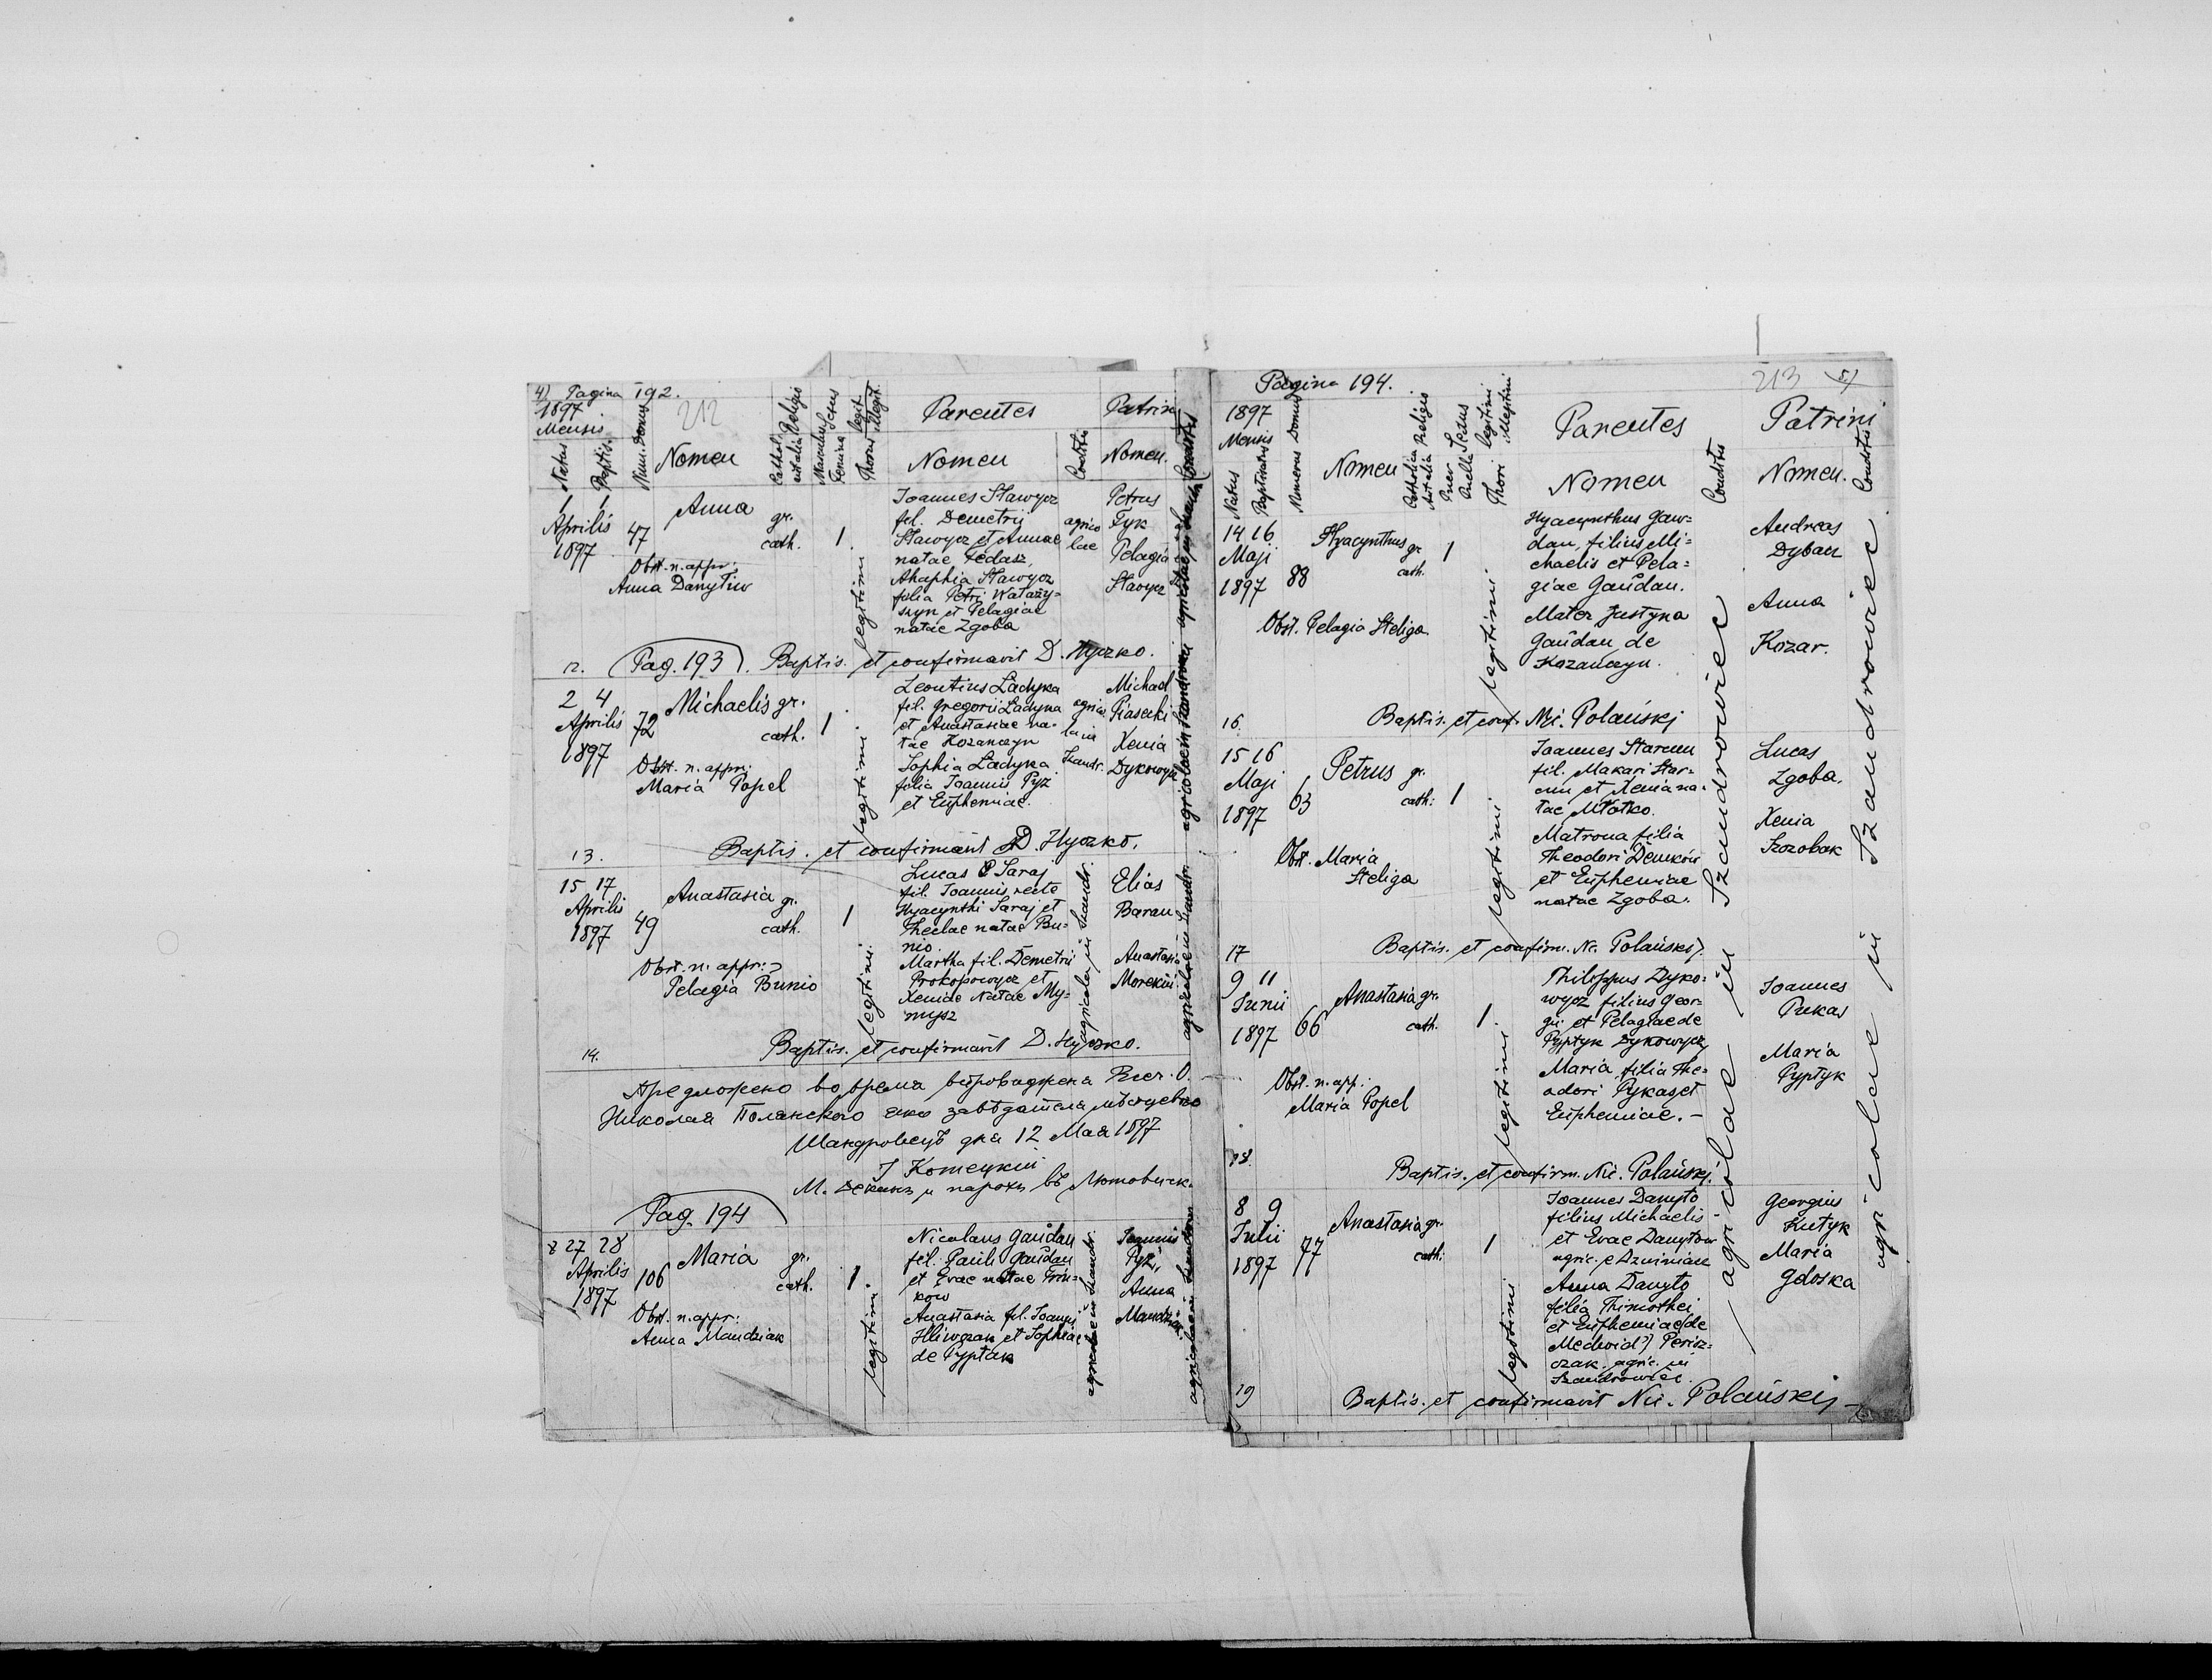 4) Pagina 192.
1897
Mensis
212
Natus
Baptis.
Num. Domus
Nomen
Cathol. Religio
Masculus Sexus
Femina
Thorus legit.
illegit.
Parentes
Nomen
Conditio
Patrini
Nomen.
Conditio
1 1
Aprilis
1897
47
Anna
gr.
cath.
1.
legitimi
Joannes Stawycz
fil. Demetrii
Stawycz et Annae
natae Fedasz,
Ahaphia Stawycz
filia Petri Watazy-
szyn et Pelagiae
natae Zgoba
agrico
lae
Petrus
Tyk
Pelagia
Stawycz
Obst. n. appr:
Anna Danytiw
12. Pag. 193. Baptis. et confirmavit D. Hyczko.
2 4
Aprilis
1897
72
Michaelis gr.
cath.
1
legitimi
Leontius Ladyka
fil. Gregorii Ladyka
et Anastasiae na-
tae Kozanczyn
Sophia Ladyka
filia Joannis Pyz
et Eupheniae.
Michael
Piasecki
Xenia
Dykowycz
Obst. n. appr:
Maria Popel
13. Baptis. et confirmavit D. Hyczko.
15 17
Aprilis
1897
49
Anastasia gr.
cath.
1
legitimi
Lucas Saraj
fil. Joannis recte
Hyacynthi Saraj et
Theclae natae Bu-
nio.
Martha fil. Demetrii
Prokopowycz et
Xeniae Natae My-
mysz
agricolae in Szandr.
Elias
Baran
Anastasia
Obst. n. appr:
Pelagia Bunio
14. Baptis. et confirmavit D. Hyczko.
Николая Полянского
Шандровець дня 12 Мая 1897
Pag. 194
27 28
Aprilis
1897
106
Maria gr.
cath.
1.
legitimi
Nicolaus Gaudan
fil. Pauli Gaudan
et Evae natae Frin-
kow
Anastasia fil. Joannis
Hliwczak et Sophiae
de Pyptak
Joannis
Pyz,
Anna
Mandziak
Obst. n. appr:
Anna Mandziak
Pagina 194.
213 5)
1897
Mensis
Natus
Baptisatus
Numerus Domus
Nomen
Catholica Religio
Aut alia
Puer Sexus
Puella
Thori legitimi
illegitimi
Parentes
Nomen
Conditio
Patrini
Nomen.
Conditio
14 16
Maji
1897
88
Hyacynthus gr
cath.
1
legitimi
Hyacynthus Gaw-
dan, filius Mi-
chaelis et Pela-
giae Gaudan.
Mater Justyna
Gaudan de
Kozanczyn.
Andreas
Dyban
Anna
Kozar.
Obst. Pelagia Steliga
16. Baptis. et conf. Nic. Polańskj
15 16
Maji
1897
63
Petrus gr.
cath.
1
legitimi
Joannes Starcun
fil. Makari Star-
cun et Xenia na-
tae Młotko.
Matrona filia
Theodori Demkow
et Eupheniae
natae Zgoba.
Lucas
Zgoba.
Xenia
Szozobak
Obst. Maria
Steliga
17 Baptis. et confirm. Nic. Polańskj.
9 11
Junii
1897
66
Anastasia gr.
cath.
1.
legitimi
Philippus Dyko-
wycz filius Geor-
gii et Pelagiae de
Pyptyk Dykowycz
Maria filia The-
odori Pykas et
Eupheniae. -
Joannes
Pukas
Maria
Pyptyk
Obst. n. app:
Maria Popel
18. Baptis. et confirm. Nic. Polańskj.
8 9
Julii
1897
77
Anastasia gr.
cath.
1
legitimi
Joannes Danyto
filius Michaelis
et Evae Danytow
agric. e Dzwiniacz
Anna Danyto
filia Thimothei
et Eupheniae (de
Medwid?) Perisz-
czak. agric. in
Szandrowiec.
Georgius
Kutyk
Maria
Gdoska
agricolae in Szandrowiec
agricolae in Szandrowiec
19 Baptis. et confirmavit Nic. Polańskj